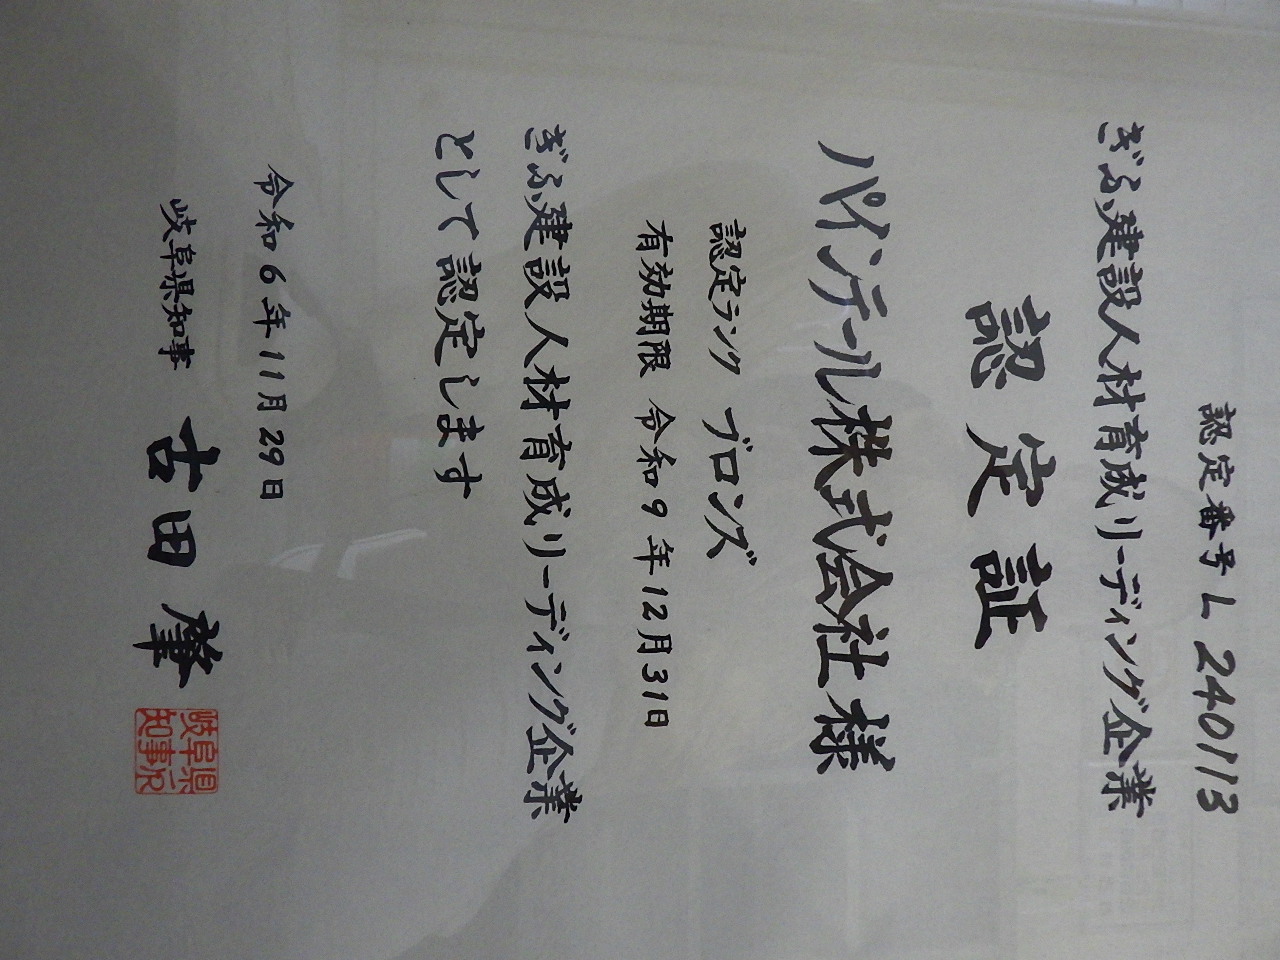 認定番号 L 240113
ぎふ建設人材育成リーディング企業
認定証
パインテール株式会社 様
認定ランク ブロンズ
有効期限 令和9年12月31日
ぎふ建設人材育成リーディング企業
として認定します
令和6年11月29日
岐阜県知事 古田 肇
岐阜県知事印